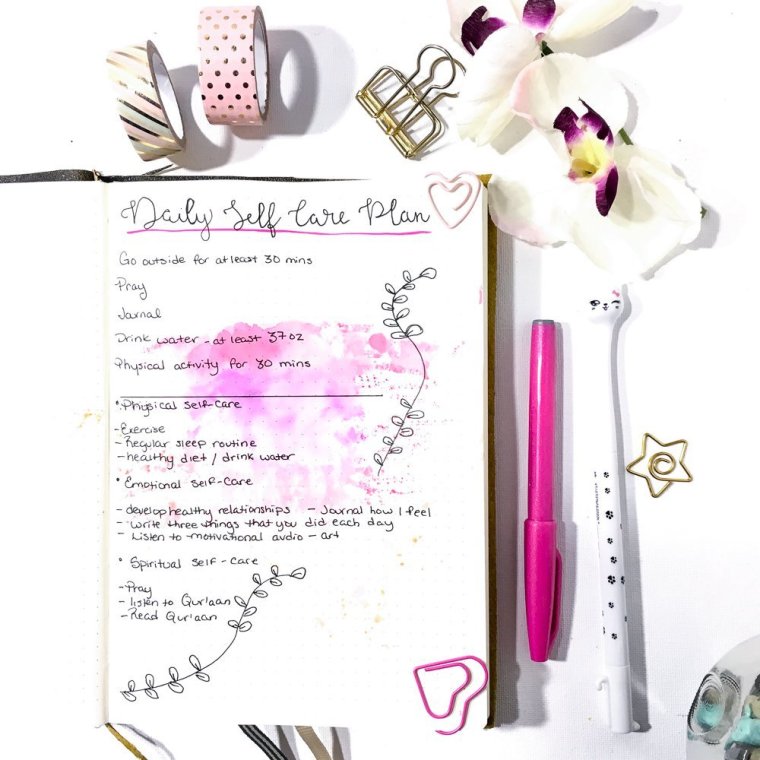 Daily Self Care Plan
Go outside for at least 30 mins
Pray
Jornal
Drink water - at least 37oz
Physical activity for 30 mins
• Physical self-care
- Exercise
- Regular sleep routine
- healthy diet / drink water
• Emotional self-care
- develop healthy relationships - Journal how I feel
- write three things that you did each day
- Listen to motivational audio - art
• Spiritual self-care
- Pray
- listen to Qur'aan
- Read Qur'aan